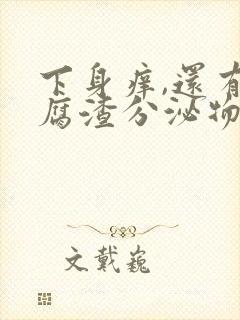 下身痒,還有
腐渣分泌物
文戴巍